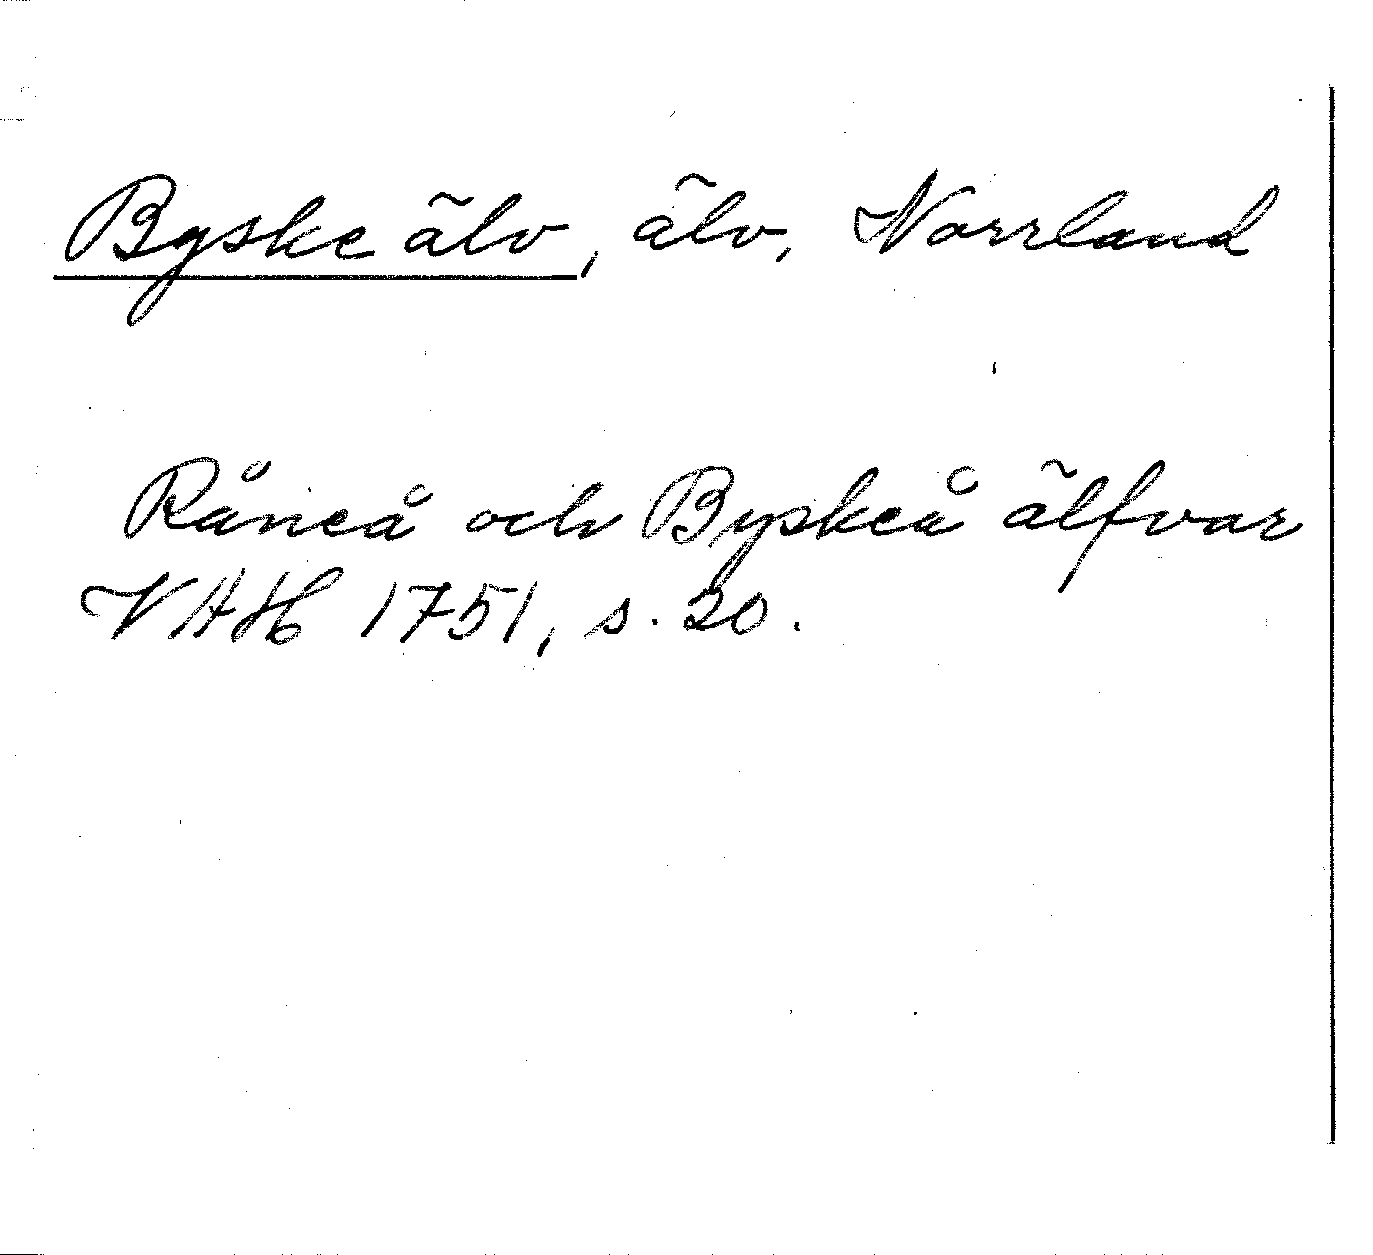 Byske älv, älv, Norrland
Råneå och Byskeå älfvar
VAH 1751, s. 20.